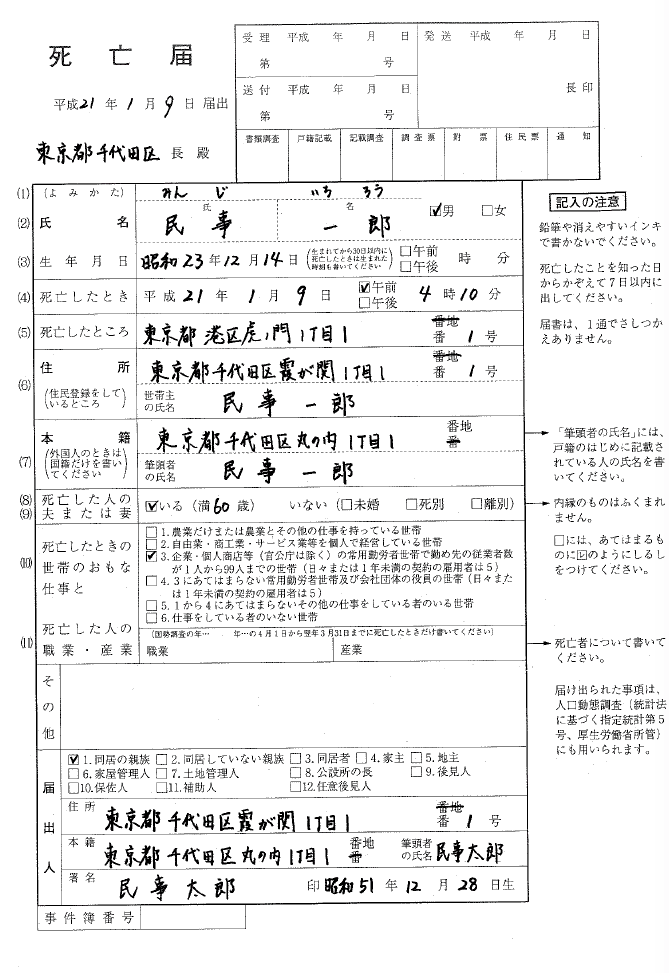 死亡届
平成21年1月9日届出
東京都千代田区 長 殿
受理 平成 年 月 日
第 号
送付 平成 年 月 日
第 号
発送 平成 年 月 日
長印
書類調査 戸籍記載 記載調査 調査票 附票 住民票 通知
(1) (よみかた) みんじ いちろう
(2) 氏名 氏 民事 名 一郎 ☑男 □女
(3) 生年月日 昭和23年12月14日 (生まれてから30日以内に死亡したときは生まれた時刻も書いてください) □午前 □午後 時 分
(4) 死亡したとき 平成21年1月9日 ☑午前 □午後 4時10分
(5) 死亡したところ 東京都港区虎ノ門1丁目1 番地 番 1号
(6) 住所 (住民登録をしているところ) 東京都千代田区霞が関1丁目1 番地 番 1号
世帯主の氏名 民事一郎
(7) 本籍 (外国人のときは国籍だけを書いてください) 東京都千代田区丸の内1丁目1 番地 番
筆頭者の氏名 民事一郎
(8)(9) 死亡した人の夫または妻 ☑いる(満60歳) いない(□未婚 □死別 □離別)
(10) 死亡したときの世帯のおもな仕事と
□1.農業だけまたは農業とその他の仕事を持っている世帯
□2.自由業・商工業・サービス業等を個人で経営している世帯
☑3.企業・個人商店等(官公庁は除く)の常用勤労者世帯で勤め先の従業者数
が1人から99人までの世帯(日々または1年未満の契約の雇用者は5)
□4.3にあてはまらない常用勤労者世帯及び会社団体の役員の世帯(日々また
は1年未満の契約の雇用者は5)
□5.1から4にあてはまらないその他の仕事をしている者のいる世帯
□6.仕事をしている者のいない世帯
(11) 死亡した人の職業・産業
(国勢調査の年…年…の4月1日から翌年3月31日までに死亡したときだけ書いてください)
職業 産業
その他
届出人
☑1.同居の親族 □2.同居していない親族 □3.同居者 □4.家主 □5.地主
□6.家屋管理人 □7.土地管理人 □8.公設所の長 □9.後見人
□10.保佐人 □11.補助人 □12.任意後見人
住所 東京都千代田区霞が関1丁目1 番地 番 1号
本籍 東京都千代田区丸の内1丁目1 番地 番 筆頭者の氏名 民事太郎
署名 民事太郎 印 昭和51年12月28日生
事件簿番号
記入の注意
鉛筆や消えやすいインキ
で書かないでください。
死亡したことを知った日
からかぞえて7日以内に
出してください。
届書は、1通でさしつか
えありません。
「筆頭者の氏名」には、
戸籍のはじめに記載され
ている人の氏名を書
いてください。
内縁のものはふくまれ
ません。
□には、あてはまるも
のに☑のようにしるし
をつけてください。
死亡者について書いて
ください。
届け出られた事項は、
人口動態調査(統計法
に基づく指定統計第5
号、厚生労働省所管)
にも用いられます。